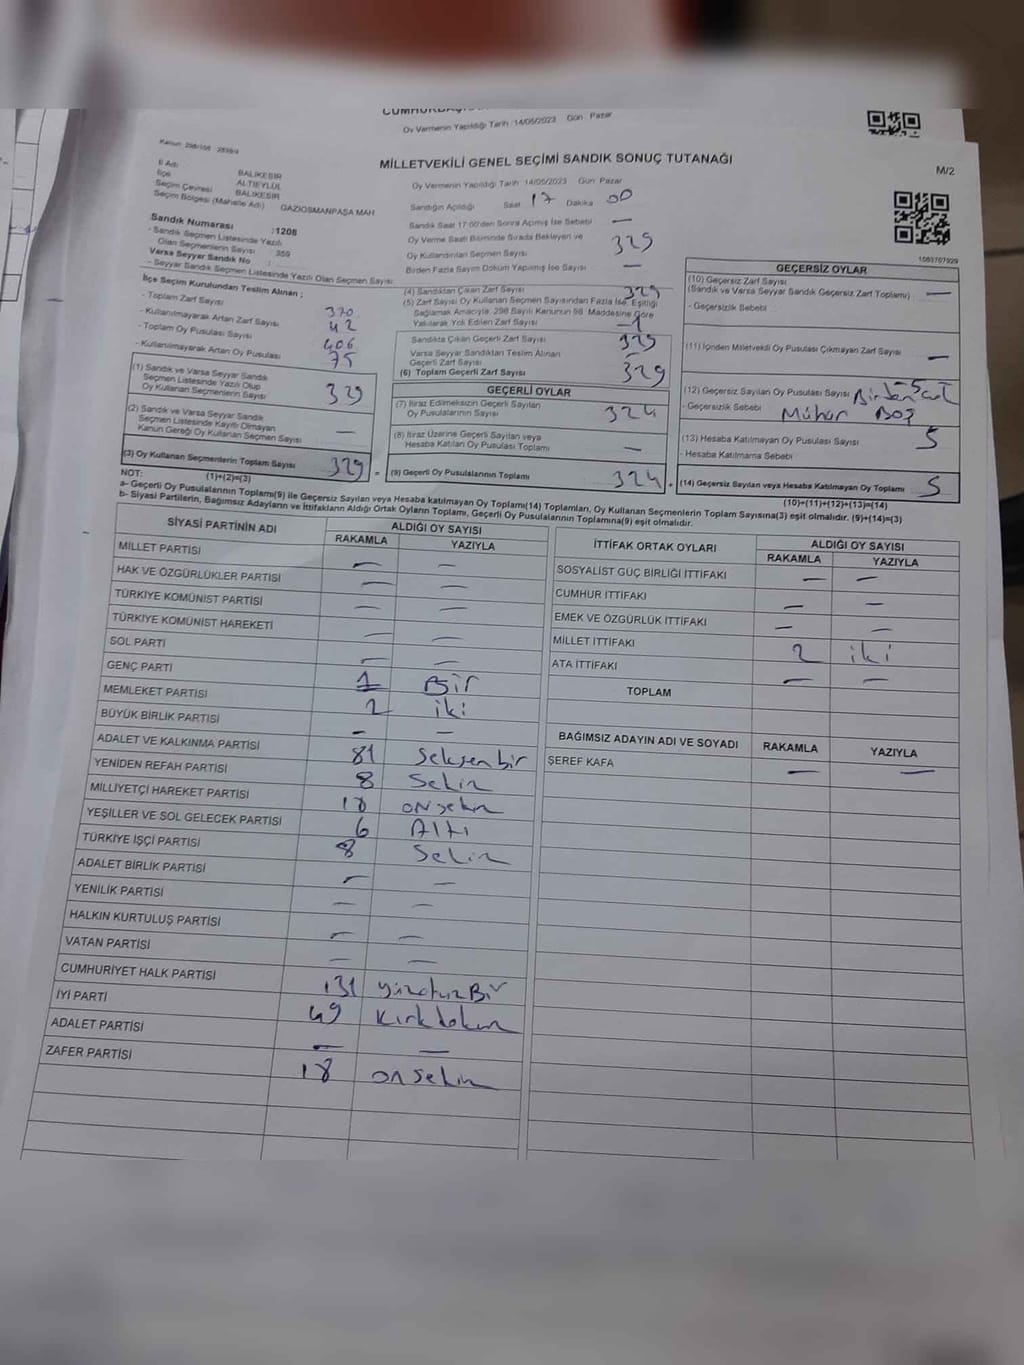 CUMHURBAŞKA
Oy Vermenin Yapıldığı Tarih :14/05/2023 Gün: Pazar
Kanun: 298/105
MİLLETVEKİLİ GENEL SEÇİMİ SANDIK SONUÇ TUTANAĞI
M/2
İl Adı BALIKESİR
İlçe ALTIEYLÜL
Seçim Çevresi BALIKESİR
Seçim Bölgesi (Mahalle Adı) GAZİOSMANPAŞA MAH
Sandık Numarası :1208
- Sandık Seçmen Listesinde Yazılı
Olan Seçmenlerin Sayısı : 359
Varsa Seyyar Sandık No :
- Seyyar Sandık Seçmen Listesinde Yazılı Olan Seçmen Sayısı:
Oy Vermenin Yapıldığı Tarih :14/05/2023 Gün: Pazar
Sandığın Açıldığı Saat 17 Dakika 00
Sandık Saat 17:00'den Sonra Açılmış İse Sebebi —
Oy Verme Saati Bitiminde Sırada Bekleyen ve
Oy Kullandırılan Seçmen Sayısı 329
Birden Fazla Sayım Döküm Yapılmış İse Sayısı —
1083707929
İlçe Seçim Kurulundan Teslim Alınan ;
- Toplam Zarf Sayısı 370
- Kullanılmayarak Artan Zarf Sayısı 42
- Toplam Oy Pusulası Sayısı 406
- Kullanılmayarak Artan Oy Pusulası 75
(1) Sandık ve Varsa Seyyar Sandık
Seçmen Listesinde Yazılı Olup
Oy Kullanan Seçmenlerin Sayısı 329
(2) Sandık ve Varsa Seyyar Sandık
Seçmen Listesinde Kayıtlı Olmayan
Kanun Gereği Oy Kullanan Seçmen Sayısı —
(3) Oy Kullanan Seçmenlerin Toplam Sayısı 329 =
(1)+(2)=(3)
(4) Sandıktan Çıkan Zarf Sayısı 329
(5) Zarf Sayısı Oy Kullanan Seçmen Sayısından Fazla İse, Eşitliği
Sağlamak Amacıyla, 298 Sayılı Kanunun 98. Maddesine Göre
Yakılarak Yok Edilen Zarf Sayısı
Sandıkta Çıkan Geçerli Zarf Sayısı 329
Varsa Seyyar Sandıktan Teslim Alınan
Geçerli Zarf Sayısı —
(6) Toplam Geçerli Zarf Sayısı 329
GEÇERLİ OYLAR
(7) İtiraz Edilmeksizin Geçerli Sayılan
Oy Pusulalarının Sayısı 324
(8) İtiraz Üzerine Geçerli Sayılan veya
Hesaba Katılan Oy Pusulası Toplamı —
(9) Geçerli Oy Pusulalarının Toplamı 324 +
GEÇERSİZ OYLAR
(10) Geçersiz Zarf Sayısı
(Sandık ve Varsa Seyyar Sandık Geçersiz Zarf Toplamı) —
- Geçersizlik Sebebi
(11) İçinden Milletvekili Oy Pusulası Çıkmayan Zarf Sayısı —
(12) Geçersiz Sayılan Oy Pusulası Sayısı 5
- Geçersizlik Sebebi Mühür Boş
(13) Hesaba Katılmayan Oy Pusulası Sayısı 5
- Hesaba Katılmama Sebebi
(14) Geçersiz Sayılan veya Hesaba Katılmayan Oy Toplamı 5
(10)+(11)+(12)+(13)=(14)
NOT:
a- Geçerli Oy Pusulalarının Toplamı(9) ile Geçersiz Sayılan veya Hesaba katılmayan Oy Toplamı(14) Toplamları, Oy Kullanan Seçmenlerin Toplam Sayısına(3) eşit olmalıdır. (9)+(14)=(3)
b- Siyasi Partilerin, Bağımsız Adayların ve İttifakların Aldığı Ortak Oyların Toplamı, Geçerli Oy Pusulalarının Toplamına(9) eşit olmalıdır.
SİYASİ PARTİNİN ADI ALDIĞI OY SAYISI
RAKAMLA YAZIYLA
MİLLET PARTİSİ — —
HAK VE ÖZGÜRLÜKLER PARTİSİ — —
TÜRKİYE KOMÜNİST PARTİSİ — —
TÜRKİYE KOMÜNİST HAREKETİ — —
SOL PARTİ — —
GENÇ PARTİ 1 Bir
MEMLEKET PARTİSİ 2 iki
BÜYÜK BİRLİK PARTİSİ — —
ADALET VE KALKINMA PARTİSİ 81 Seksenbir
YENİDEN REFAH PARTİSİ 8 Sekiz
MİLLİYETÇİ HAREKET PARTİSİ 18 onsekiz
YEŞİLLER VE SOL GELECEK PARTİSİ 6 Altı
TÜRKİYE İŞÇİ PARTİSİ 8 Sekiz
ADALET BİRLİK PARTİSİ — —
YENİLİK PARTİSİ — —
HALKIN KURTULUŞ PARTİSİ — —
VATAN PARTİSİ — —
CUMHURİYET HALK PARTİSİ 131 yüzotuzBir
İYİ PARTİ 49 Kırkdokuz
ADALET PARTİSİ — —
ZAFER PARTİSİ 18 onsekiz
İTTİFAK ORTAK OYLARI ALDIĞI OY SAYISI
RAKAMLA YAZIYLA
SOSYALİST GÜÇ BİRLİĞİ İTTİFAKI — —
CUMHUR İTTİFAKI — —
EMEK VE ÖZGÜRLÜK İTTİFAKI — —
MİLLET İTTİFAKI 2 iki
ATA İTTİFAKI — —
TOPLAM
BAĞIMSIZ ADAYIN ADI VE SOYADI RAKAMLA YAZIYLA
ŞEREF KAFA — —